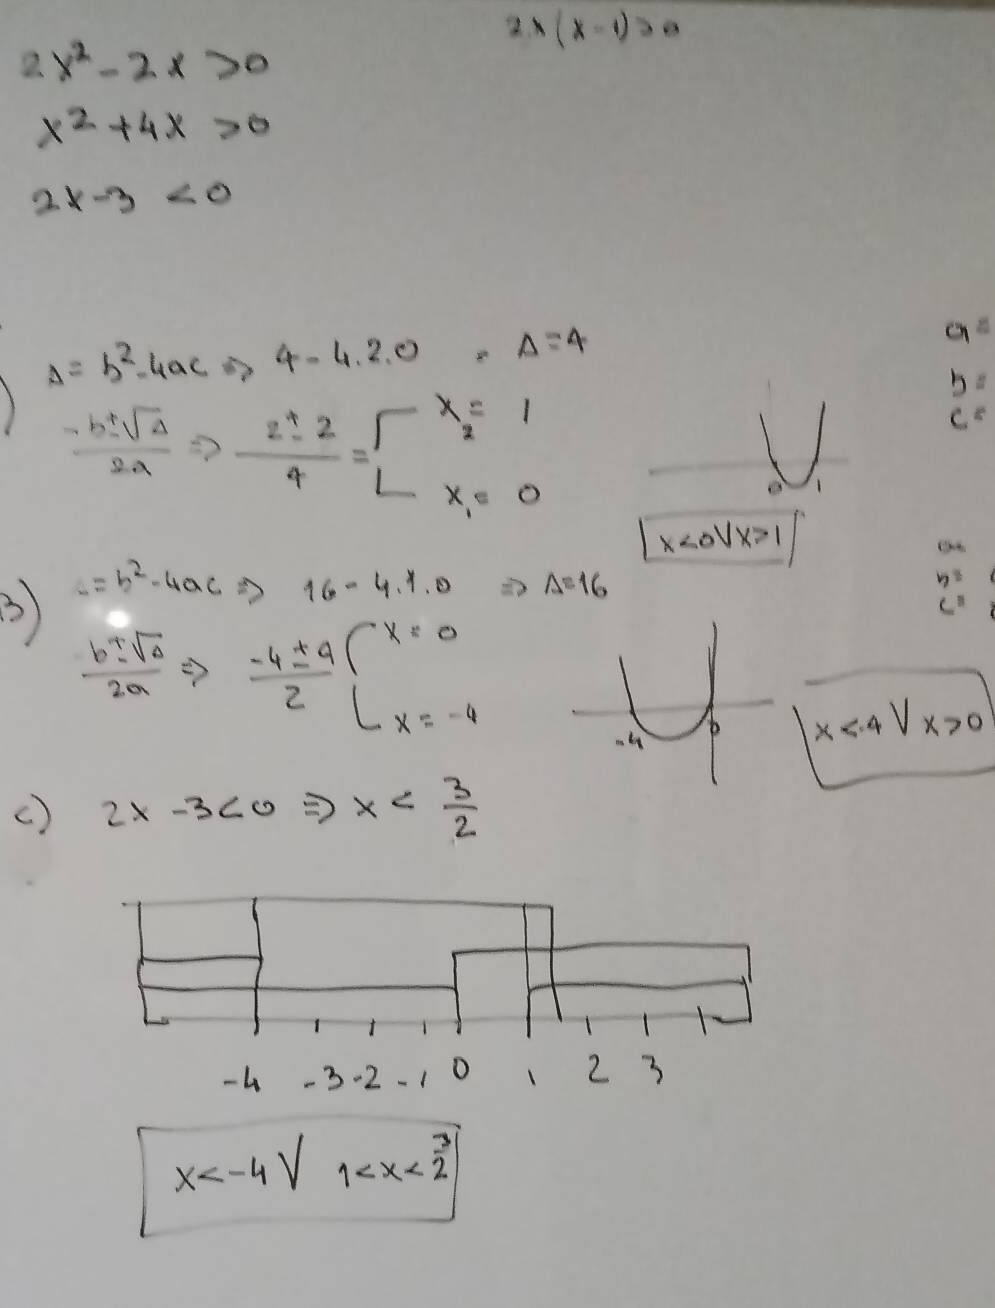 2x(x-1)>0
2x²-2x>0
x²+4x>0
2x-3<0
Δ=b²-4ac⇒4-4.2.0 = Δ=4
a=
b=
c=
-b±√Δ/2a ⇒ 2±2/4 = x₂=1
x₁=0
0 1
x<0∨x>1
B) Δ=b²-4ac⇒16-4.1.0 ⇒Δ=16
a=
b=
c=
b±√Δ/2a ⇒ -4±4/2 x=0
x=-4
-4 0
x<-4∨x>0
c) 2x-3<0⇒x<3/2
-4 -3 -2 -1 0 1 2 3
x<-4∨ 1<x<3/2